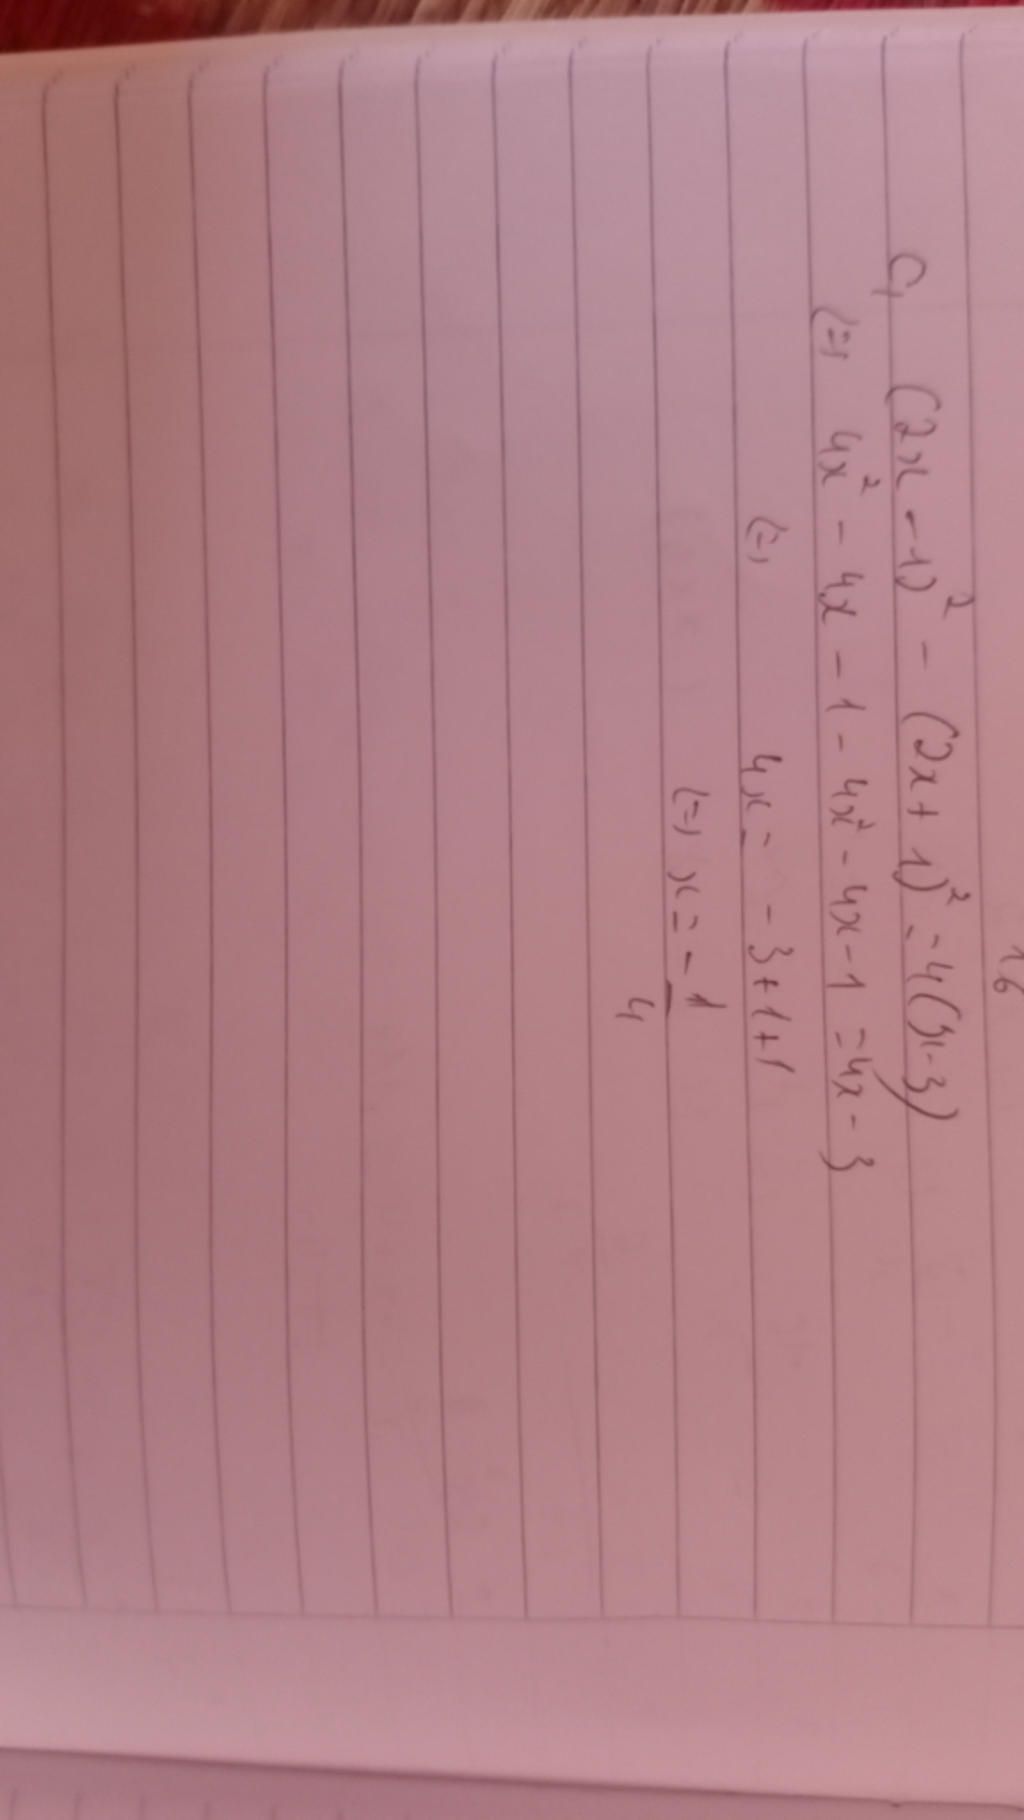 16
C, (2x - 1)² - (2x + 1)² = 4(x - 3)
(=) 4x² - 4x - 1 - 4x² - 4x - 1 = 4x - 3
(=) 4x = -3 + 1 + 1
(=) x = -1
4